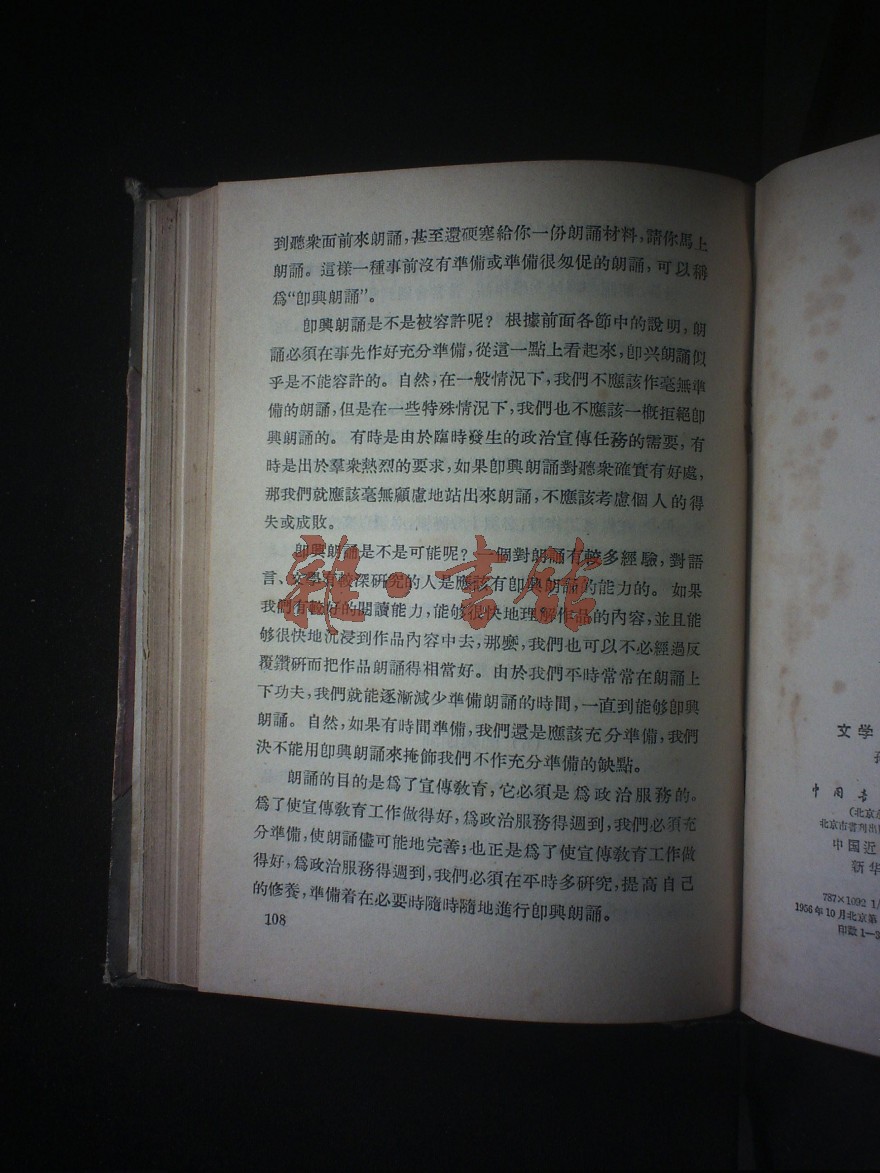 到聽衆面前來朗誦，甚至還硬塞給你一份朗誦材料，請你馬上
朗誦。這樣一種事前沒有準備或準備很匆促的朗誦，可以稱
爲“卽興朗誦”。
卽興朗誦是不是被容許呢？根據前面各節中的說明，朗
誦必須在事先作好充分準備，從這一點上看起來，卽兴朗誦似
乎是不能容許的。自然，在一般情況下，我們不應該作毫無準
備的朗誦，但是在一些特殊情況下，我們也不應該一槪拒絕卽
興朗誦的。有時是由於臨時發生的政治宣傳任務的需要，有
時是出於羣衆熱烈的要求，如果卽興朗誦對聽衆確實有好處，
那我們就應該毫無顧慮地站出來朗誦，不應該考慮個人的得
失或成敗。
卽興朗誦是不是可能呢？一個對朗誦有較多經驗，對語
言、文學有較深研究的人是應該有卽興朗誦的能力的。如果
我們有較好的閱讀能力，能够很快地理解作品的內容，並且能
够很快地沉浸到作品內容中去，那麼，我們也可以不必經過反
覆鑽研而把作品朗誦得相當好。由於我們平時常常在朗誦上
下功夫，我們就能逐漸減少準備朗誦的時間，一直到能够卽興
朗誦。自然，如果有時間準備，我們還是應該充分準備，我們
決不能用卽興朗誦來掩飾我們不作充分準備的缺點。
朗誦的目的是爲了宣傳敎育，它必須是爲政治服務的。
爲了使宣傳敎育工作做得好，爲政治服務得週到，我們必須充
分準備，使朗誦儘可能地完善；也正是爲了使宣傳敎育工作做
得好，爲政治服務得週到，我們必須在平時多研究，提高自己
的修養，準備着在必要時隨時隨地進行卽興朗誦。
108
雜·書館
文学
中国青
(北京
北京市書刊出
中国近
新华
787×1092 1/
1956年10月北京第
印数1—3